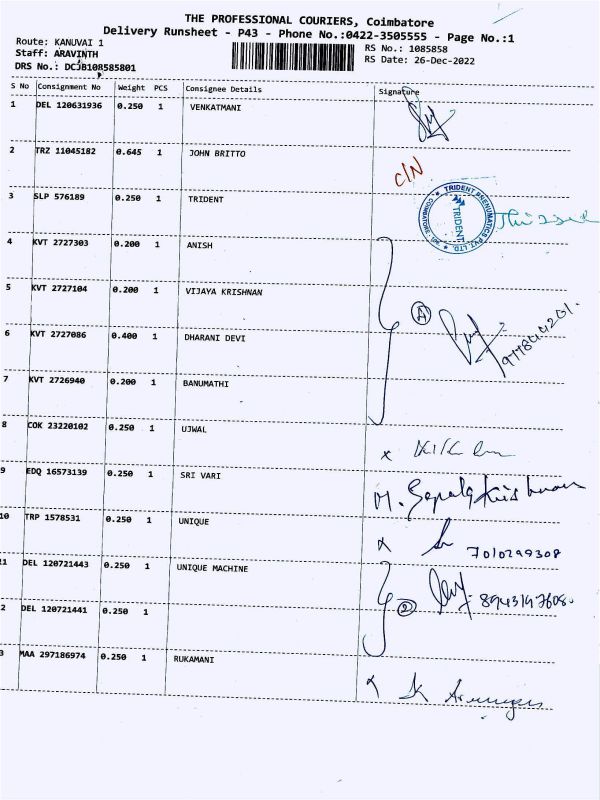 THE PROFESSIONAL COURIERS, Coimbatore
Delivery Runsheet - P43 - Phone No.:0422-3505555 - Page No.:1
Route: KANUVAI 1
RS No.: 1085858
Staff: ARAVINTH
RS Date: 26-Dec-2022
DRS No.: DCJB108585801
S No Consignment No Weight PCS Consignee Details Signature
1 DEL 120631936 0.250 1 VENKATMANI
2 TRZ 11045182 0.645 1 JOHN BRITTO C/N
3 SLP 576189 0.250 1 TRIDENT
TRIDENT PNEUMATICS PVT. LTD. COIMBATORE
TRIDENT
4 KVT 2727303 0.200 1 ANISH
5 KVT 2727104 0.200 1 VIJAYA KRISHNAN
6 KVT 2727086 0.400 1 DHARANI DEVI
7 KVT 2726940 0.200 1 BANUMATHI
8 COK 23220102 0.250 1 UJWAL
9 EDQ 16573139 0.250 1 SRI VARI M. Gopalakrishnan
10 TRP 1578531 0.250 1 UNIQUE 7010299308
11 DEL 120721443 0.250 1 UNIQUE MACHINE
2 DEL 120721441 0.250 1 2
3 MAA 297186974 0.250 1 RUKAMANI